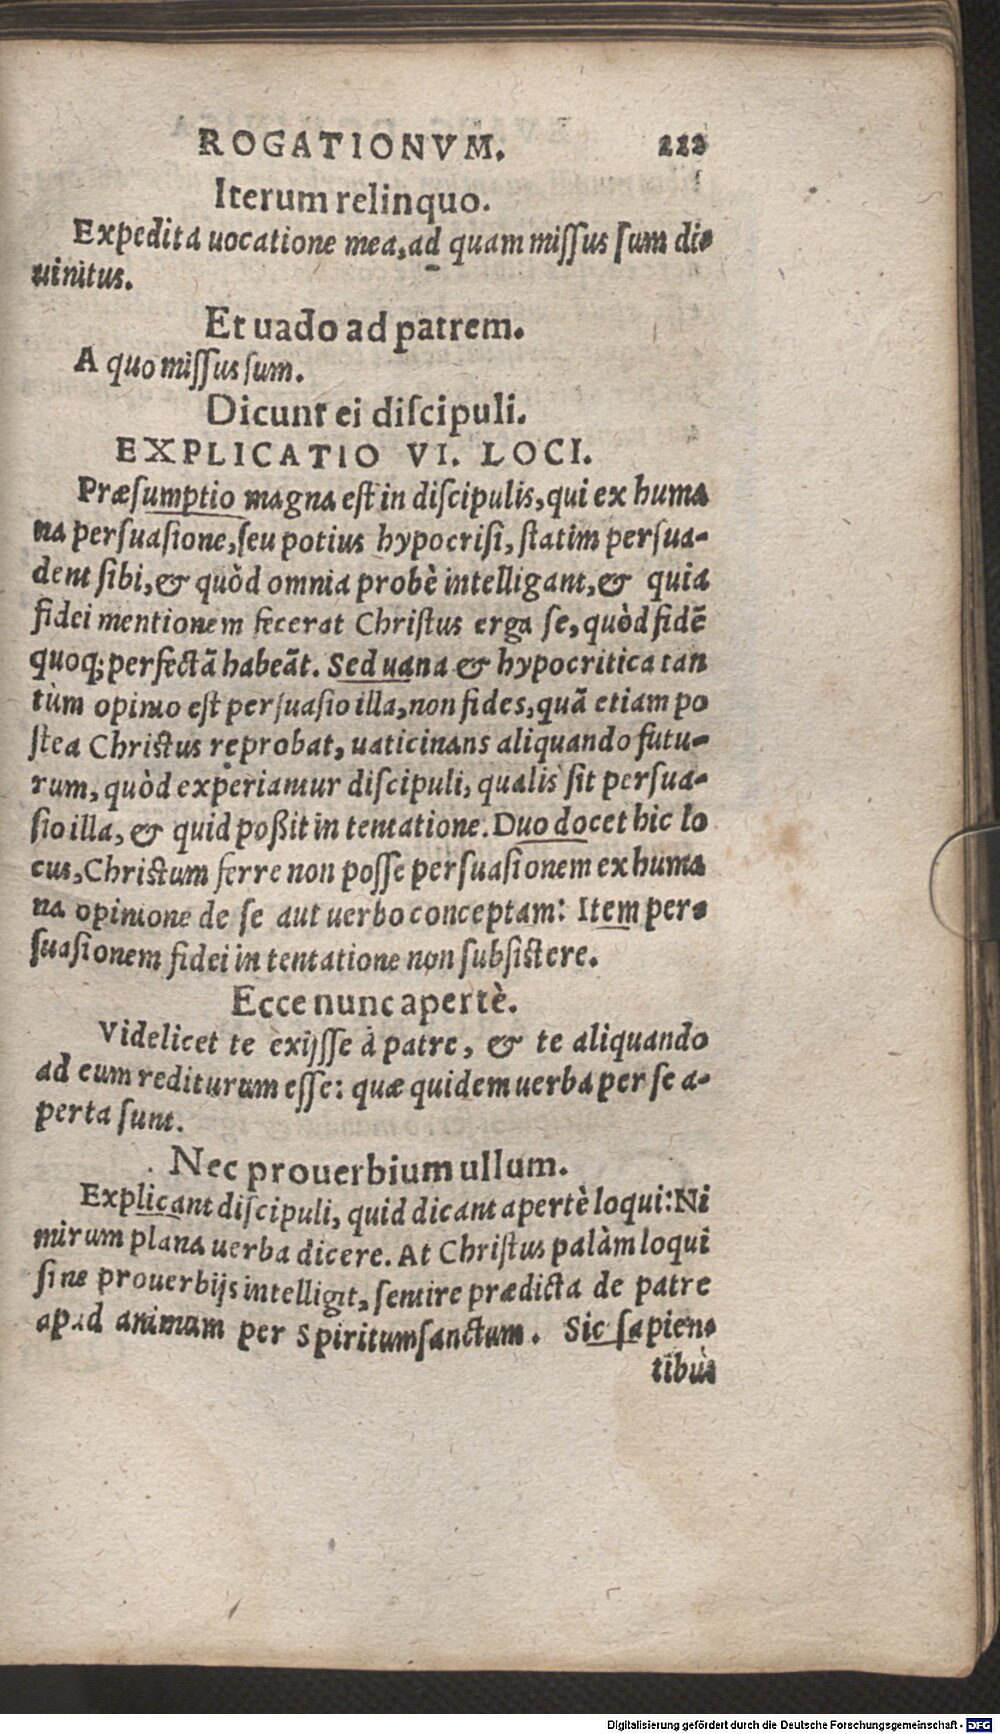 ROGATIONVM. 222
Iterum relinquo.
Expedita uocatione mea, ad quam missus sum di-
uinitus.
Et uado ad patrem.
A quo missus sum.
Dicunt ei discipuli.
EXPLICATIO VI. LOCI.
Præsumptio magna est in discipulis, qui ex huma
na persuasione, seu potius hypocrisi, statim persua-
dent sibi, & quòd omnia probè intelligant, & quia
fidei mentionem fecerat Christus erga se, quòd fidẽ
quoq; perfectã habeãt. Sed uana & hypocritica tan
tùm opinio est persuasio illa, non fides, quã etiam po
stea Christus reprobat, uaticinans aliquando futu-
rum, quòd experiamur discipuli, qualis sit persua-
sio illa, & quid poßit in tentatione. Duo docet hic lo
cus, Christum ferre non posse persuasionem ex huma
na opinione de se aut uerbo conceptam: Item per-
suasionem fidei in tentatione non subsistere.
Ecce nunc apertè.
Videlicet te exijsse à patre, & te aliquando
ad eum rediturum esse: quæ quidem uerba per se a-
perta sunt.
Nec prouerbium ullum.
Explicant discipuli, quid dicant apertè loqui: Ni
mirum plana uerba dicere. At Christus palàm loqui
sine prouerbijs intelligit, sentire prædicta de patre
apud animum per Spiritumsanctum. Sic sapien-
tibus
Digitalisierung gefördert durch die Deutsche Forschungsgemeinschaft - DFG